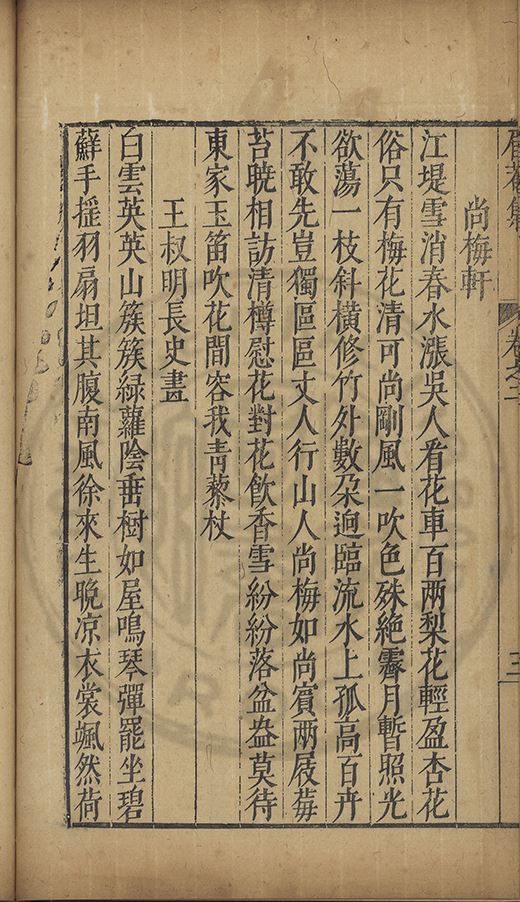 尚梅軒
江堤雪消春水漲吳人看花車百兩梨花輕盈杏花
俗只有梅花清可尚剛風一吹色殊絶霽月暫照光
欲蕩一枝斜橫修竹外數朶逈臨流水上孤高百卉
不敢先豈獨區區丈人行山人尚梅如尚賓兩屐莓
苔曉相訪清樽慰花對花飮香雪紛紛落盆盎莫待
東家玉笛吹花間容我靑藜杖
王叔明長史畫
白雲英英山簇簇緑蘿陰垂樹如屋鳴琴彈罷坐碧
蘚手揺羽扇坦其腹南風徐來生晩凉衣裳颯然荷